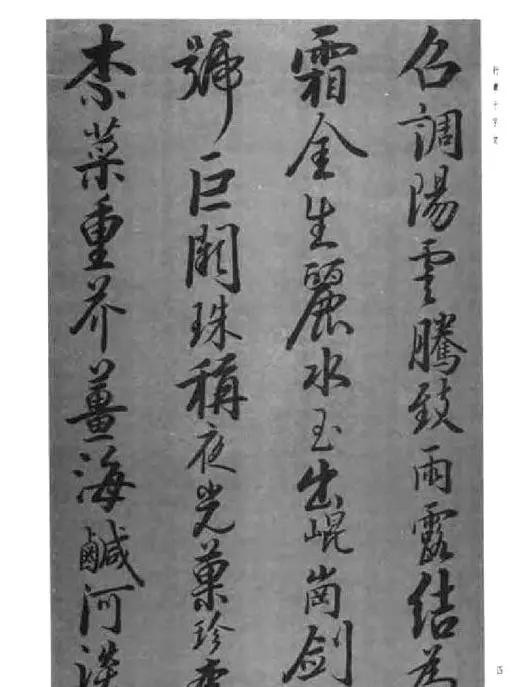 行書千字文
召調陽雲騰致雨露結為
霜金生麗水玉出崐崗劍
號巨闕珠稱夜光菓珍李
柰菜重芥薑海鹹河淡